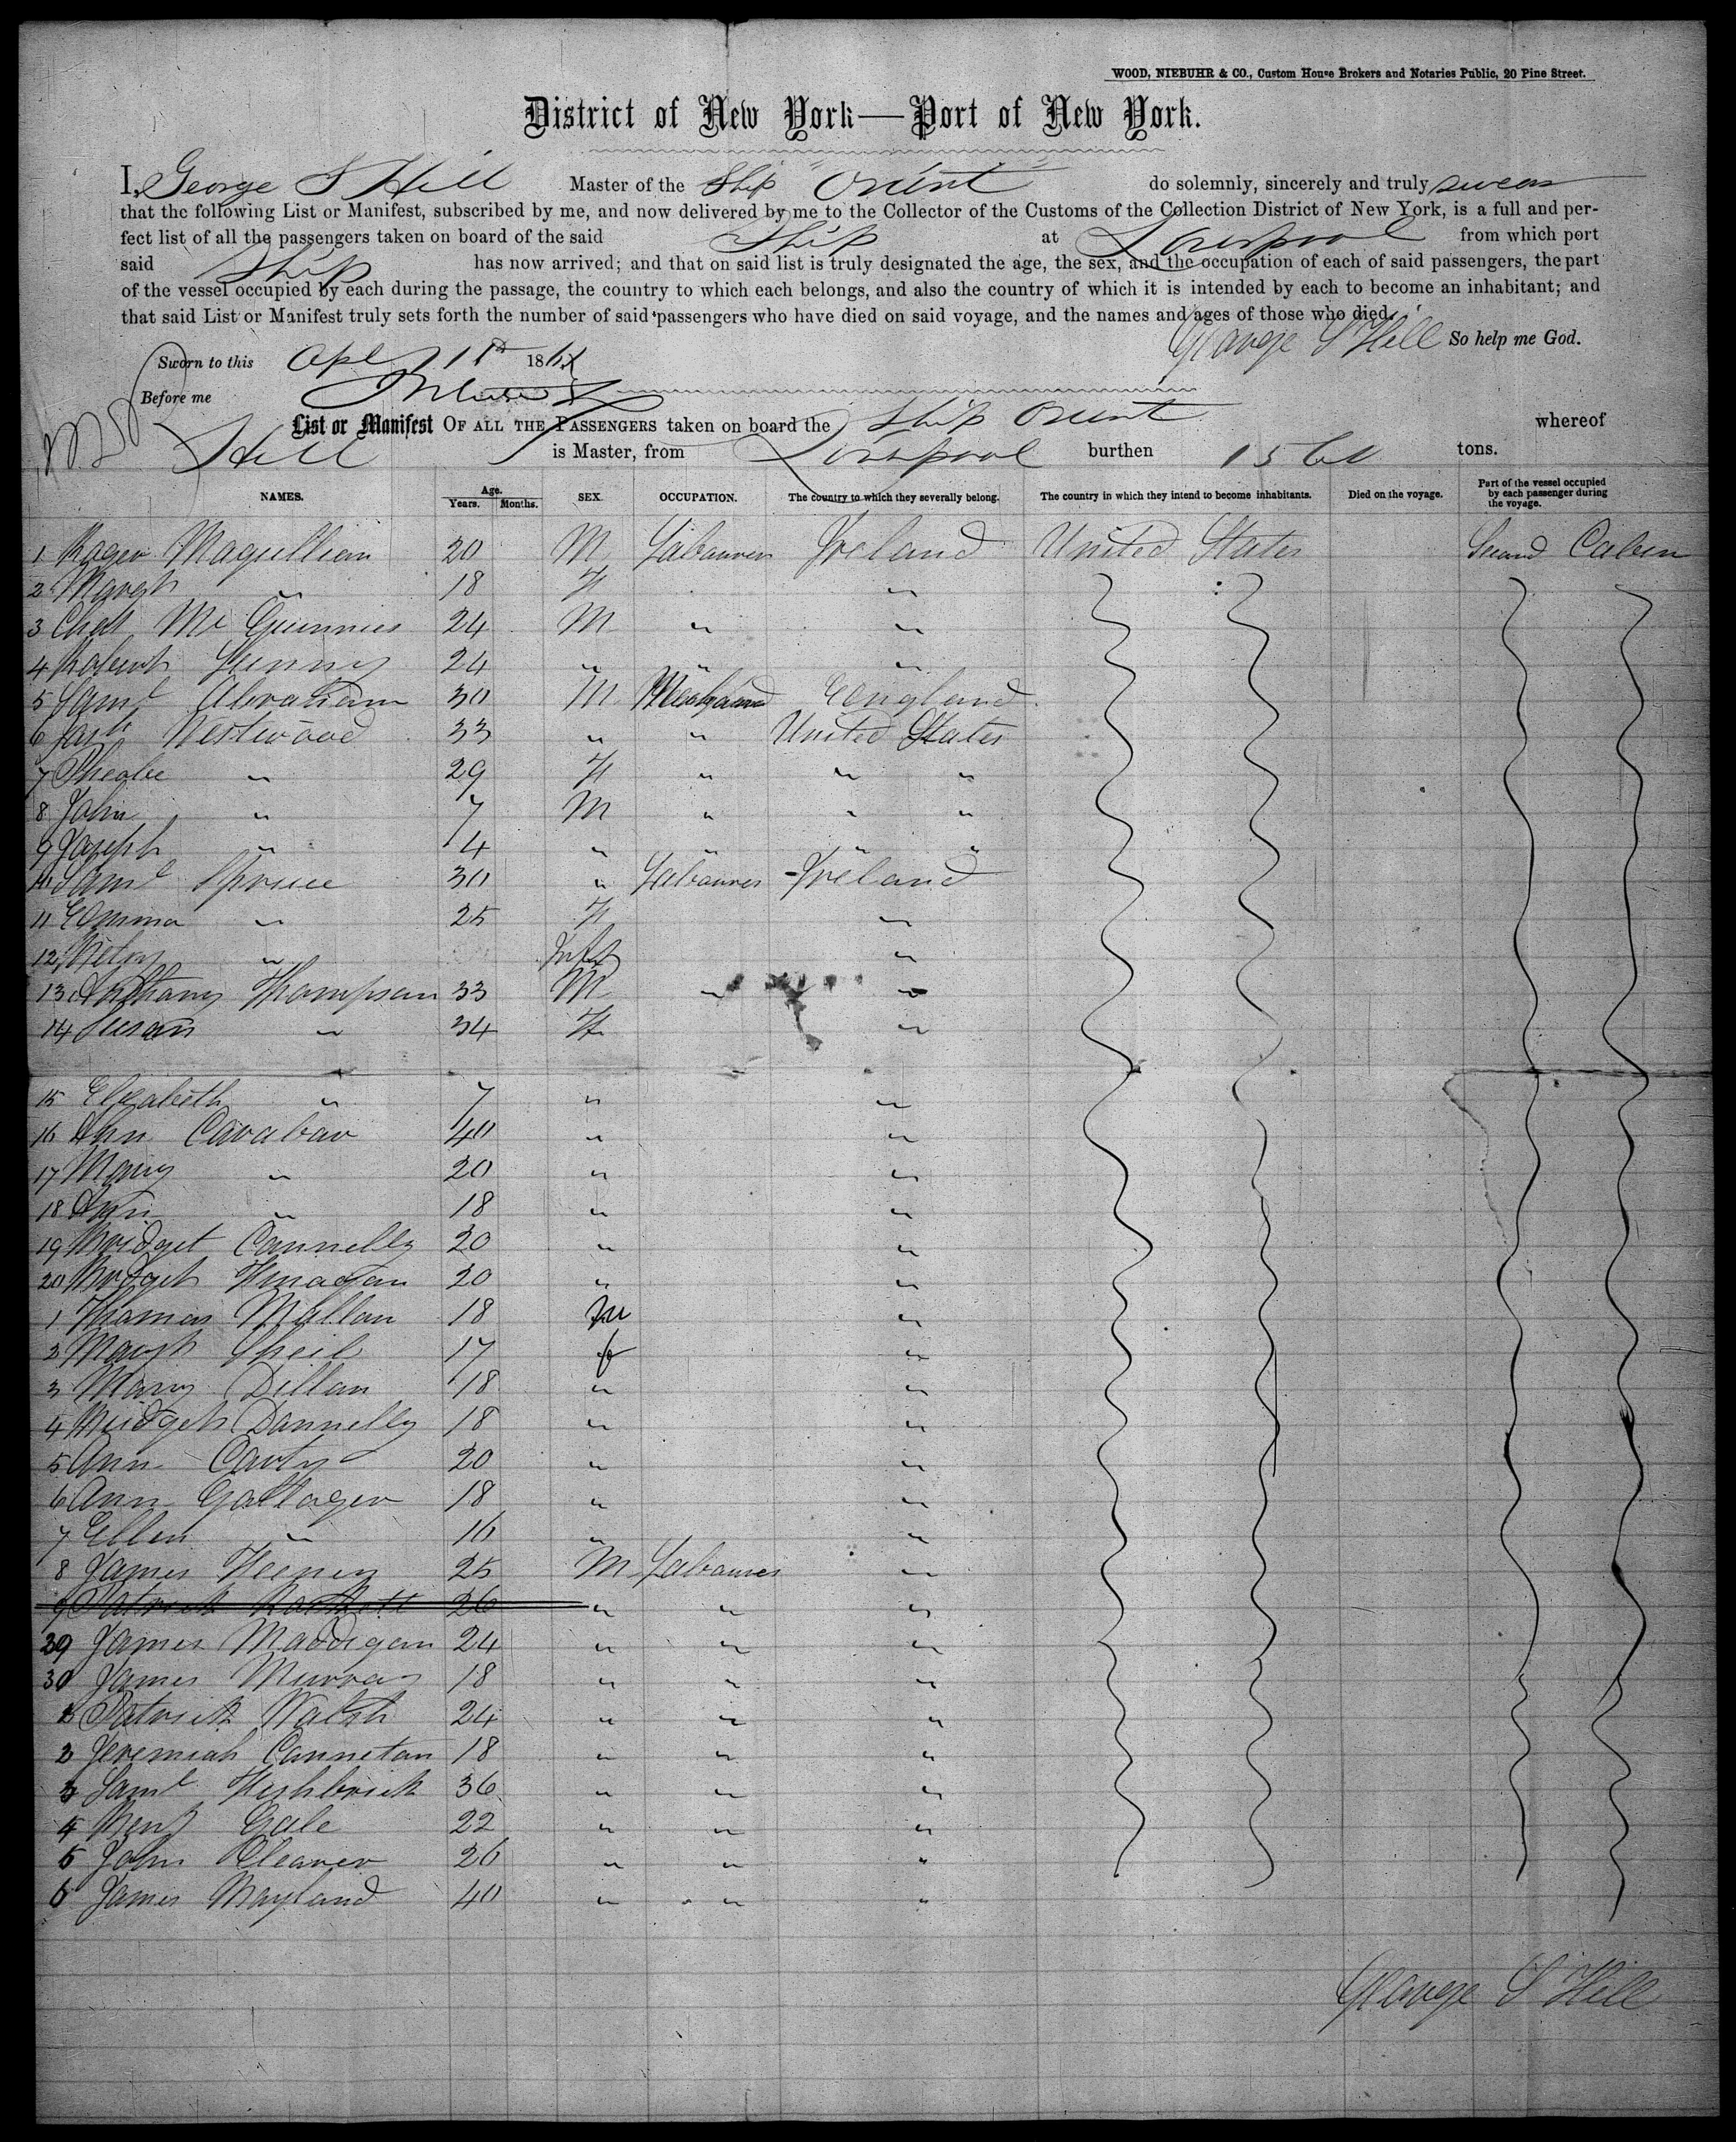 WOOD, NIEBUHR & CO., Custom House Brokers and Notaries Public, 20 Pine Street.
District of New York—Port of New York.
I, George S Hill Master of the Ship "Orient" do solemnly, sincerely and truly swear
that the following List or Manifest, subscribed by me, and now delivered by me to the Collector of the Customs of the Collection District of New York, is a full and per-
fect list of all the passengers taken on board of the said Ship at Liverpool from which port
said Ship has now arrived; and that on said list is truly designated the age, the sex, and the occupation of each of said passengers, the part
of the vessel occupied by each during the passage, the country to which each belongs, and also the country of which it is intended by each to become an inhabitant; and
that said List or Manifest truly sets forth the number of said passengers who have died on said voyage, and the names and ages of those who died.
George S Hill So help me God.
Sworn to this Apl 186
Before me
List or Manifest OF ALL THE PASSENGERS taken on board the Ship Orient whereof
Hill is Master, from Liverpool burthen 1560 tons.
NAMES. Age. Years. Months. SEX. OCCUPATION. The country to which they severally belong. The country in which they intend to become inhabitants. Died on the voyage. Part of the vessel occupied by each passenger during the voyage.
1 Roger Maquillian 20 M Labourer Ireland United States Second Cabin
2 Margt " 18 F "
3 Chas Mc Guinnies 24 M " "
4 Robert 24 " " "
5 Saml Abraham 30 M England
6 Westwood 33 " " United States
7 Pheobe " 29 F " " "
8 John " 7 M " " "
9 Joseph " 4 " " " "
10 Saml Spruce 30 " Labourer Ireland
11 Emma " 25 F "
12 " Inft "
13 Anthony Thompson 33 M " "
14 Susan " 34 F "
15 Elizabeth " 7 " "
16 Ann Cavabar 40 " "
17 Mary " 20 " "
18 Ann " 18 " "
19 Bridget Connelly 20 " "
20 Bridget Finagan 20 " "
1 Thomas Mullan 18 M "
2 Margt Sheil 17 f "
3 Mary Dillan 18 " "
4 Bridget Donnelly 18 " "
5 Ann Carty 20 " "
6 Ann Gallager 18 " "
7 Ellen " 16 " "
8 James Feeney 25 M Labourer "
9 Patrick 26 " " "
29 James Maddigan 24 " " "
30 James Murray 18 " " "
1 Patrick Walsh 24 " " "
2 Jeremiah Cannetan 18 " " "
3 Saml Fishbrick 36 " " "
4 Benj Gale 22 " " "
5 John Cleaver 26 " " "
6 James Mayland 40 " " "
George S Hill